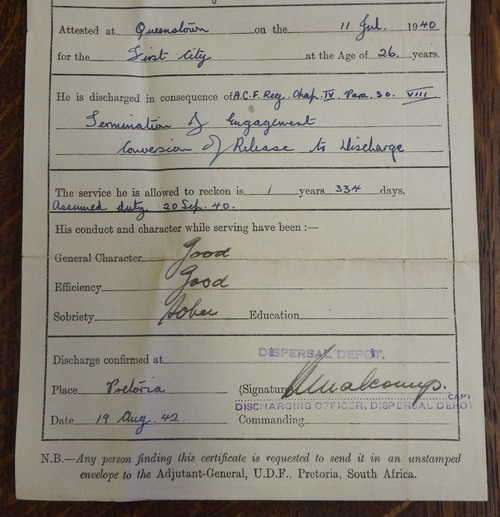 Attested at Queenstown on the 11 Jul. 1940
for the First City at the Age of 26 years.
He is discharged in consequence of A.C.F. Reg. Chap. IV. Para. 30. VIII
Termination of Engagement
Conversion of Release to Discharge
The service he is allowed to reckon is 1 years 334 days.
Assumed duty 20 Sep. 40.
His conduct and character while serving have been :—
General Character Good
Efficiency Good
Sobriety Sober Education
Discharge confirmed at DISPERSAL DEPOT.
Place Pretoria (Signature)
CAPT
DISCHARGING OFFICER, DISPERSAL DEPOT
Date 19 Aug. 42 Commanding
N.B.—Any person finding this certificate is requested to send it in an unstamped
envelope to the Adjutant-General, U.D.F., Pretoria, South Africa.